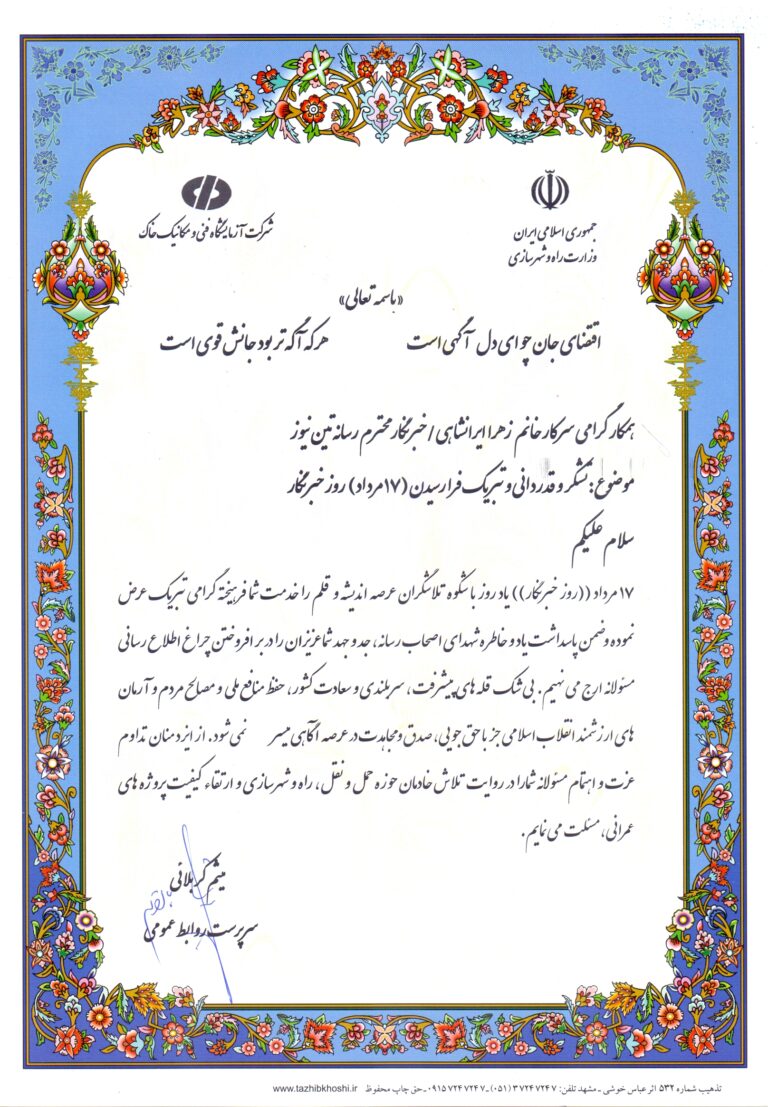 جمهوری اسلامی ایران
وزارت راه و شهرسازی
شرکت آزمایشگاه فنی و مکانیک خاک
«باسمه تعالی»
اقتضای جان چو ای دل آگهی است هر که آگه تر بود جانش قوی است
همکار گرامی سرکار خانم زهرا ایرانشاهی / خبرنگار محترم رسانه تین نیوز
موضوع: تشکر و قدردانی و تبریک فرارسیدن (۱۷ مرداد) روز خبرنگار
سلام علیکم
۱۷ مرداد ((روز خبرنگار)) یاد روز باشکوه تلاشگران عرصه اندیشه و قلم را خدمت شما فرهیخته گرامی تبریک عرض
نموده و ضمن پاسداشت یاد و خاطره شهدای اصحاب رسانه، جد و جهد شما عزیزان را در بر افروختن چراغ اطلاع رسانی
مسئولانه ارج می نهیم. بی شک قله های پیشرفت، سربلندی و سعادت کشور، حفظ منافع ملی و مصالح مردم و آرمان
های ارزشمند انقلاب اسلامی جز با حق جویی، صدق و مجاهدت در عرصه آگاهی میسر نمی شود. از ایزد منان تداوم
عزت و اهتمام مسئولانه شما را در روایت تلاش خادمان حوزه حمل و نقل، راه و شهرسازی و ارتقاء کیفیت پروژه های
عمرانی، مسئلت می نمایم.
میثم کربلائی
سرپرست روابط عمومی
تذهیب شماره ۵۳۲ اثر عباس خوشی - مشهد تلفن: ۳۷۲۴۷۲۴۷ (۰۵۱) - ۰۹۱۵۷۲۴۷۲۴۷ - حق چاپ محفوظ www.tazhibkhoshi.ir